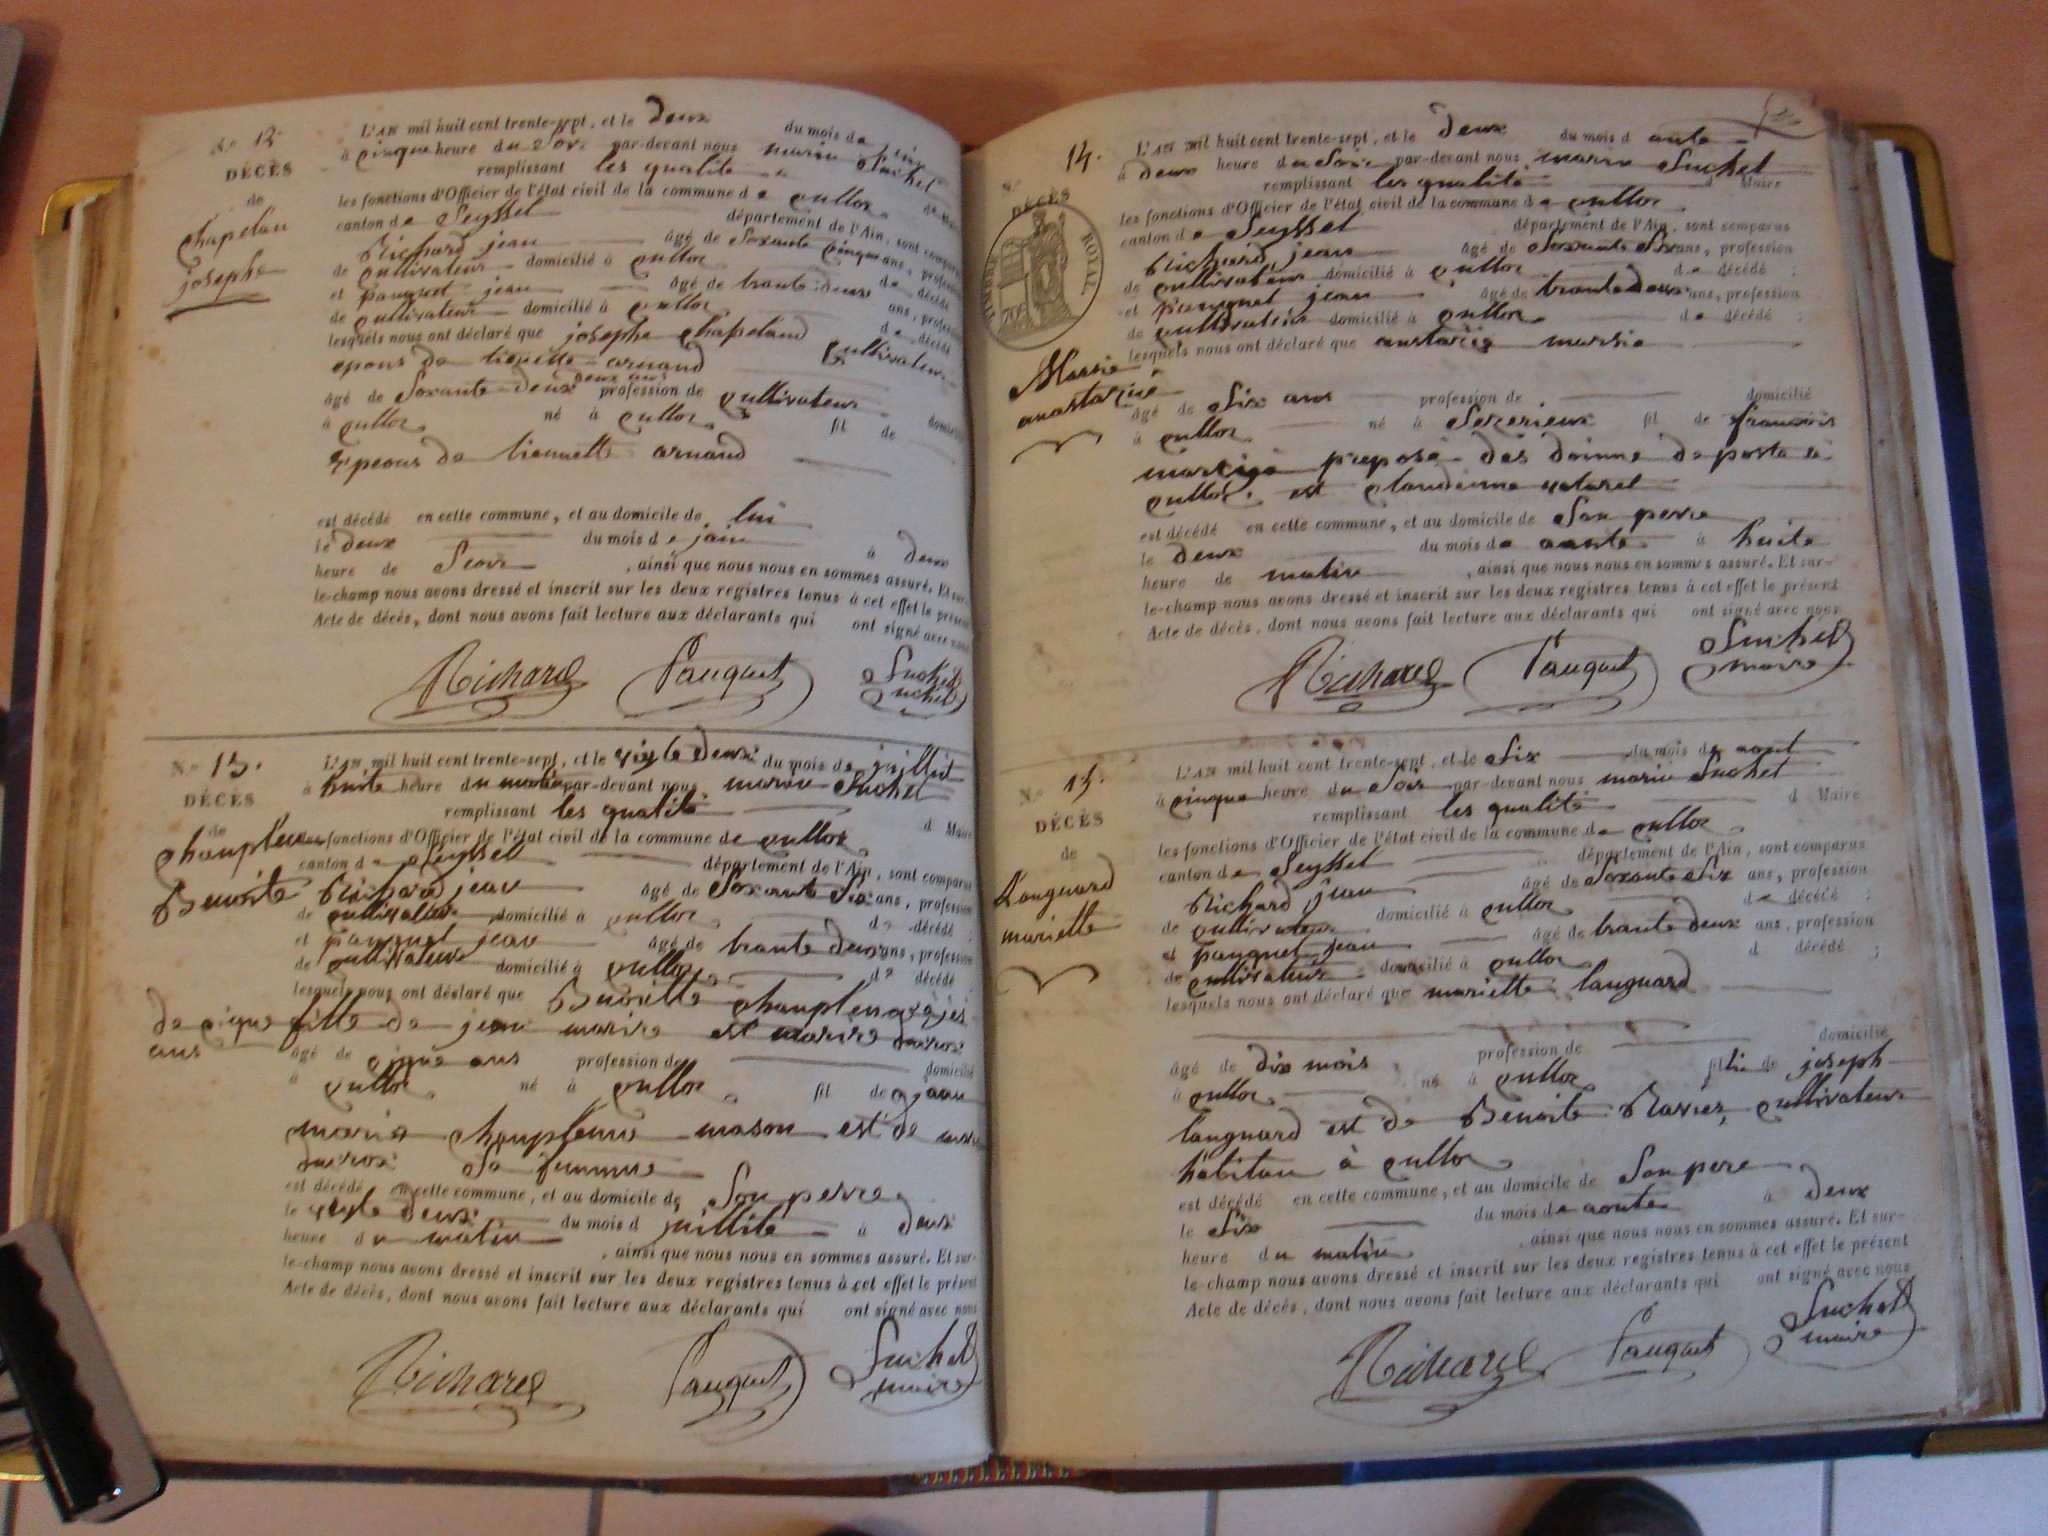 N.o 12.
DÉCÈS
de
Chapelau
josephe
L'AN mil huit cent trente-sept, et le deux du mois de juin
à cinque heure du Soir par-devant nous marin Suchet
remplissant les qualité de Maire
les fonctions d'Officier de l'état civil de la commune de Culloz
canton de Seyssel département de l'Ain, sont comparus
Richard jean âgé de Soxante cinque ans, profession
de cultivateur domicilié à Culloz de décédé
et pauquet jean âgé de trante deux ans, profession
de cultivateur domicilié à Culloz de décédé
lesquels nous ont déclaré que josephe Chapeland Cultivateur
epous de tienette arnand
deux ans
âgé de Soxante deux profession de Cultivateur domicilié
à Culloz né à Culloz fil de
Epeous de tiennette arnand
est décédé en cette commune, et au domicile de lui
le deux du mois de juin à deux
heure de Seoir , ainsi que nous nous en sommes assuré. Et sur-
le-champ nous avons dressé et inscrit sur les deux registres tenus à cet effet le présent
Acte de décès, dont nous avons fait lecture aux déclarants qui ont signé avec nous
Richard Pauquet Suchet
Suchet
N.o 13.
DÉCÈS
de
Benoite
L'AN mil huit cent trente-sept, et le vigte deux du mois de juillet
à huite heure du matin par-devant nous marin Suchet
remplissant les qualité d Maire
les fonctions d'Officier de l'état civil de la commune de Culloz
canton de Seyssel département de l'Ain, sont comparus
Richard jean âgé de Soxante Six ans, profession
de cultivateur domicilié à Culloz de décédé ;
et pauquet jean âgé de trante deux ans, profession
de cultivateur domicilié à Culloz de décédé
lesquels nous ont déclaré que Benoitte
de cique ans
fille de jean marire est marire ducrox
âgé de cique ans profession de domicilié
à Culloz né à Culloz fil de jean
maria mason est de
ducrox Sa fumme
est décédé en cette commune, et au domicile de Son perre
le vigte deux du mois d juillité à deux
heure du matin , ainsi que nous nous en sommes assuré. Et sur-
le-champ nous avons dressé et inscrit sur les deux registres tenus à cet effet le présent
Acte de décès, dont nous avons fait lecture aux déclarants qui ont signé avec nous
Richard Pauquet Suchet
maire
N.o 14.
DÉCÈS
TIMBRE ROYAL
70c
Marsie
anastazié
L'AN mil huit cent trente-sept, et le deux du mois d aute
à deux heure du Soir par-devant nous marin Suchet
remplissant les qualité d Maire
les fonctions d'Officier de l'état civil de la commune de Culloz
canton de Seyssel département de l'Ain, sont comparus
Richard jean âgé de Soxante Six ans, profession
de cultivateur domicilié à Culloz de décédé ;
et Pauquet jean âgé de trante deux ans, profession
de cultivateur domicilié à Culloz de décédé ;
lesquels nous ont déclaré que anstazié marsie
âgé de Six ans profession de domicilié
à Culloz né à Sererieux fil de francois
preposé des doinne de poste à
Culloz est Claudinne
est décédé en cette commune, et au domicile de Son perre
le deux du mois de aoute à huite
heure de matin , ainsi que nous nous en sommes assuré. Et sur-
le-champ nous avons dressé et inscrit sur les deux registres tenus à cet effet le présent
Acte de décès, dont nous avons fait lecture aux déclarants qui ont signé avec nous
Richard Pauquet Suchet
maire
N.o 15.
DÉCÈS
de
Languard
mariette
L'AN mil huit cent trente-sept, et le Six du mois de aout
à cinque heure du Soir par-devant nous marin Suchet
remplissant les qualité d Maire
les fonctions d'Officier de l'état civil de la commune de Culloz
canton de Seyssel département de l'Ain, sont comparus
Richard jean âgé de Soxante Six ans, profession
de cultivateur domicilié à Culloz de décédé ;
et Pauquet jean âgé de trante deux ans, profession
de cultivateur domicilié à Culloz d décédé ;
lesquels nous ont déclaré que mariette languard
âgé de dix mois profession de domicilié
à Culloz né à Culloz fillie de joseph
languard est de Benoite Ravier, cultivateur
habitan à Culloz
est décédé en cette commune, et au domicile de Son pere
le Six du mois de aoute à deux
heure du matin , ainsi que nous nous en sommes assuré. Et sur-
le-champ nous avons dressé et inscrit sur les deux registres tenus à cet effet le présent
Acte de décès, dont nous avons fait lecture aux déclarants qui ont signé avec nous
Richard Pauquet Suchet
maire